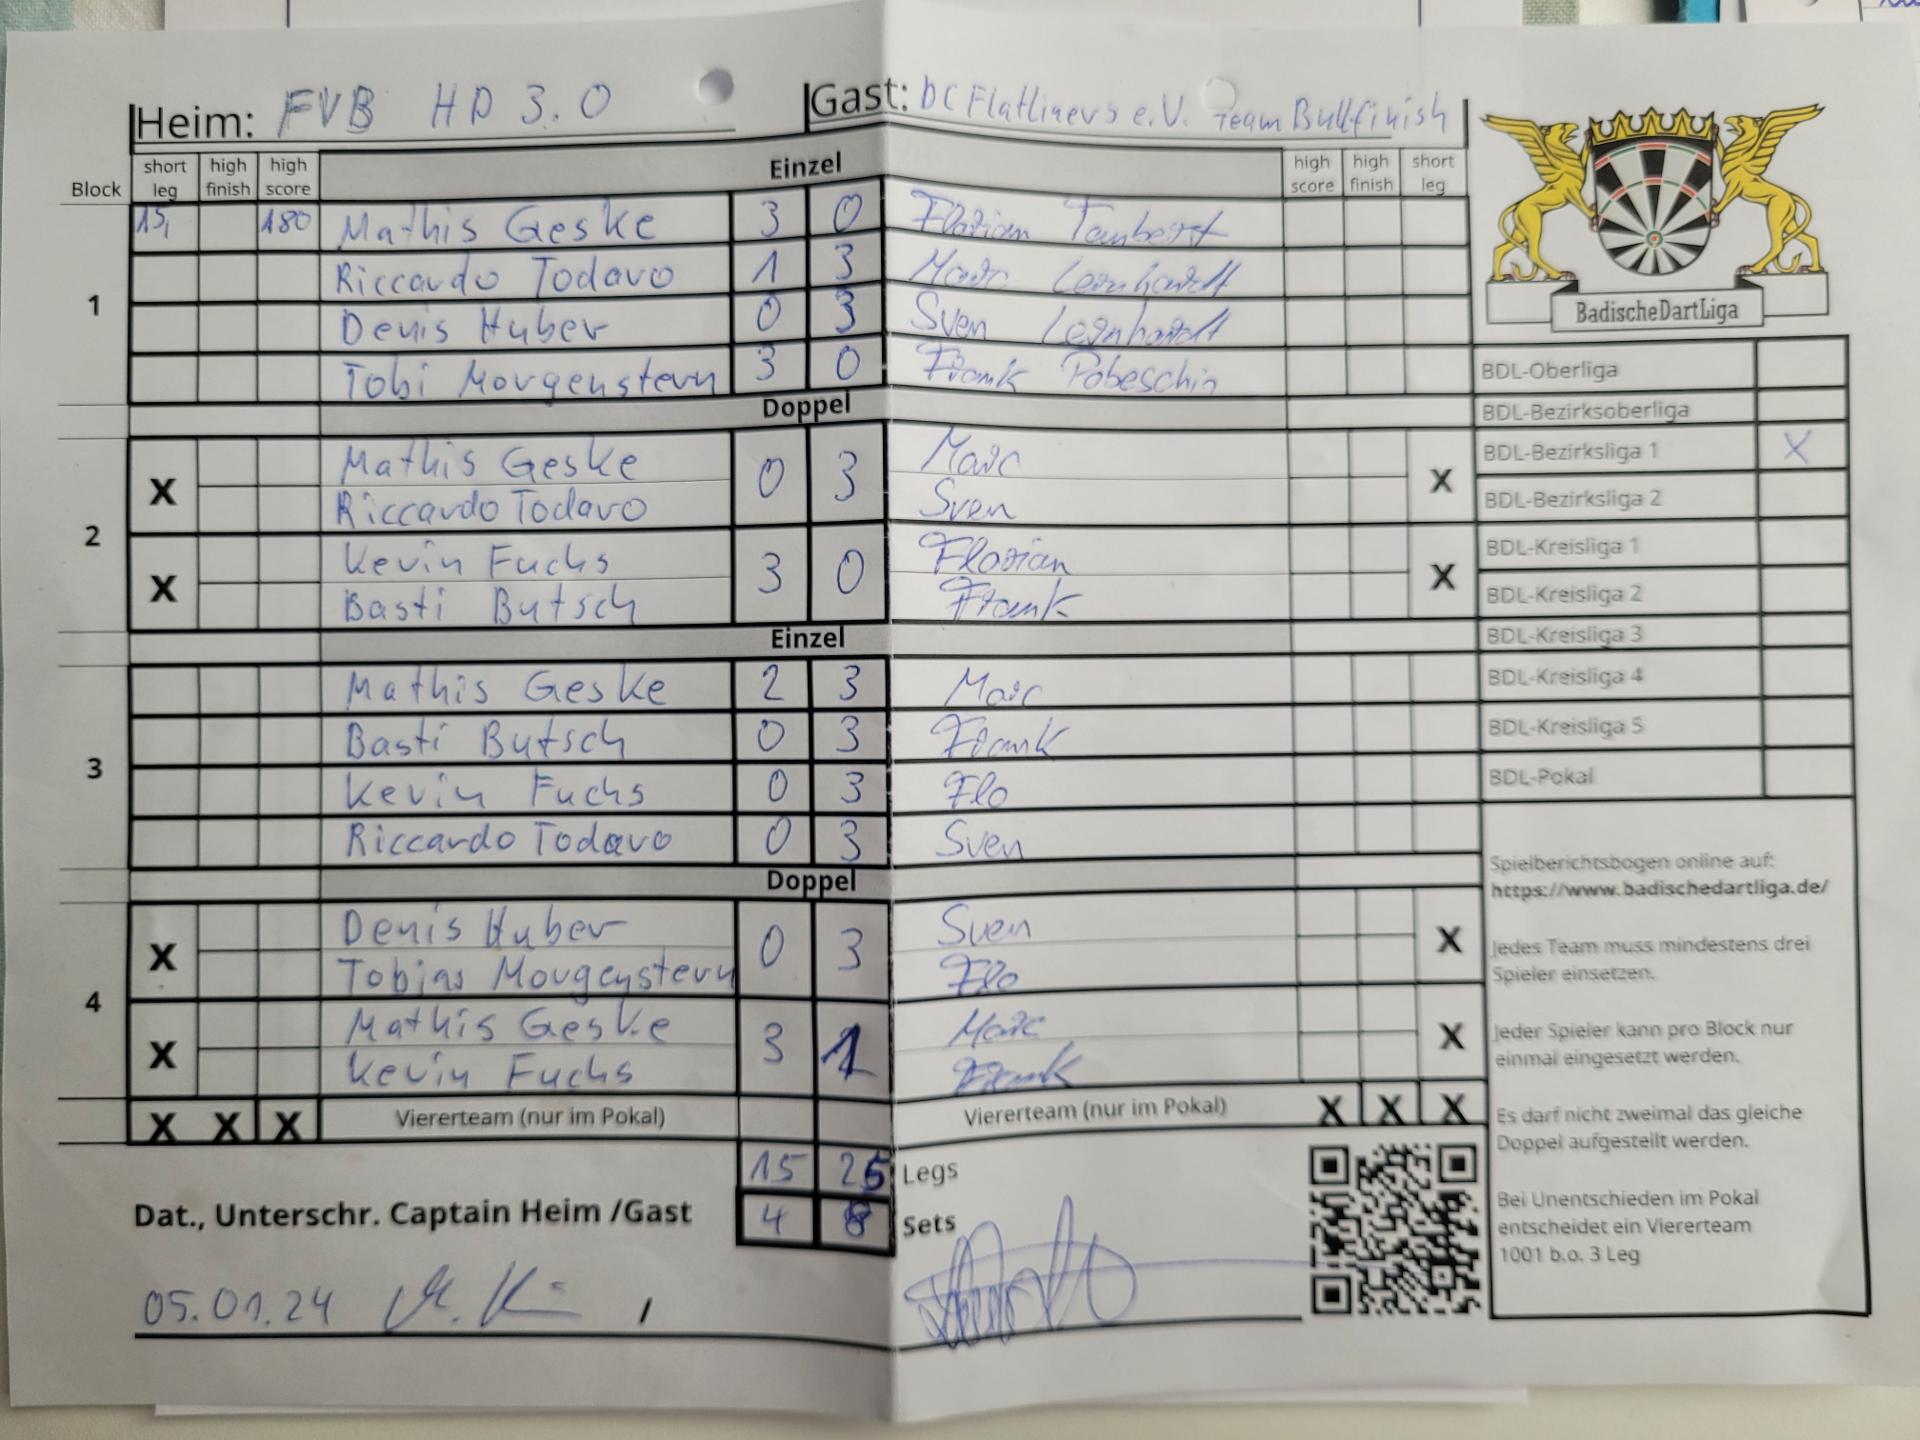 Heim: FVB HD 3.0 Gast: DC Flatliners e.V. Team Bullfinish
Block short leg high finish high score Einzel high score high finish short leg
1
15, 180 Mathis Geske 3 0 Florian Taubert
Riccardo Todaro 1 3 Marc Leonhardt
Denis Huber 0 3 Sven Leonhardt
Tobi Morgenstern 3 0 Frank Pobeschin
Doppel
2
X Mathis Geske 0 3 Marc X
Riccardo Todaro Sven
X Kevin Fuchs 3 0 Florian X
Basti Butsch Frank
Einzel
3
Mathis Geske 2 3 Marc
Basti Butsch 0 3 Frank
Kevin Fuchs 0 3 Flo
Riccardo Todaro 0 3 Sven
Doppel
4
X Denis Huber 0 3 Sven X
Tobias Morgenstern Flo
X Mathis Geske 3 1 Marc X
Kevin Fuchs Frank
X X X Viererteam (nur im Pokal) Viererteam (nur im Pokal) X X X
15 25 Legs
Dat., Unterschr. Captain Heim /Gast 4 8 Sets
05.01.24 /
BadischeDartLiga
BDL-Oberliga
BDL-Bezirksoberliga
BDL-Bezirksliga 1 X
BDL-Bezirksliga 2
BDL-Kreisliga 1
BDL-Kreisliga 2
BDL-Kreisliga 3
BDL-Kreisliga 4
BDL-Kreisliga 5
BDL-Pokal
Spielberichtsbogen online auf:
https://www.badischedartliga.de/
Jedes Team muss mindestens drei
Spieler einsetzen.
Jeder Spieler kann pro Block nur
einmal eingesetzt werden.
Es darf nicht zweimal das gleiche
Doppel aufgestellt werden.
Bei Unentschieden im Pokal
entscheidet ein Viererteam
1001 b.o. 3 Leg